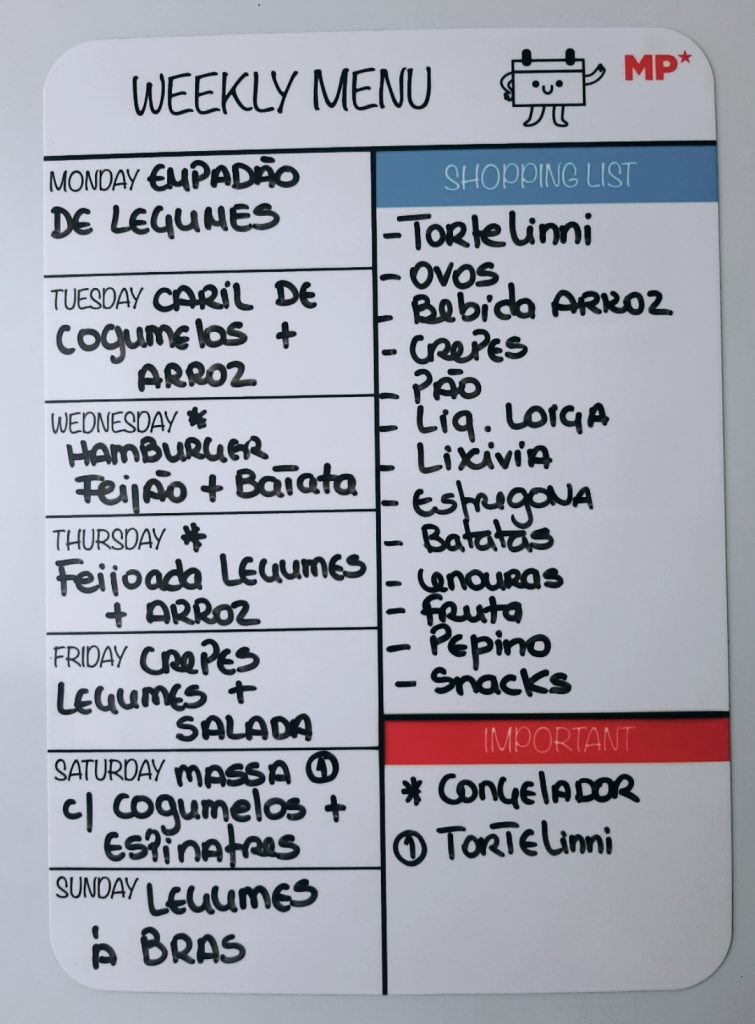 WEEKLY MENU
MP
MONDAY EMPADÃO
DE LEGUMES
TUESDAY CARIL DE
Cogumelos +
ARROZ
WEDNESDAY *
HAMBURGER
Feijão + BATATA
THURSDAY *
Feijoada LEGUMES
+ ARROZ
FRIDAY CREPES
LEGUMES +
SALADA
SATURDAY MASSA ①
c/ Cogumelos +
ESPINAFRES
SUNDAY LEGUMES
à BRAS
SHOPPING LIST
- Tortelinni
- OVOS
- Bebida ARROZ
- CREPES
- PÃO
- Liq. LOIÇA
- Lixivia
- ESFREGONA
- Batatas
- Cenouras
- Fruta
- Pepino
- Snacks
IMPORTANT
* CONGELADOR
① TORTELinni